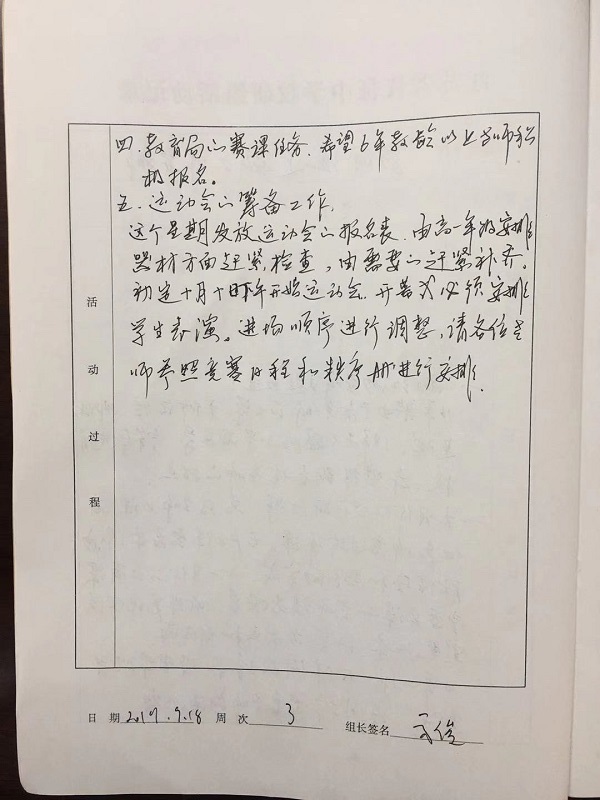 四.教育局的赛课任务、希望6年教龄以上老师积
极报名。
五.运动会的筹备工作
这个星期发放运动会的报名表.由高一年级安排
器材方面赶紧检查,由需要的赶紧补齐。
初定十月十日下午开始运动会.开幕式必须安排
学生表演。进场顺序进行调整,请各位老
师参照竞赛日程和秩序册进行安排.
活
动
过
程
日 期 9.18 周 次 3 组长签名